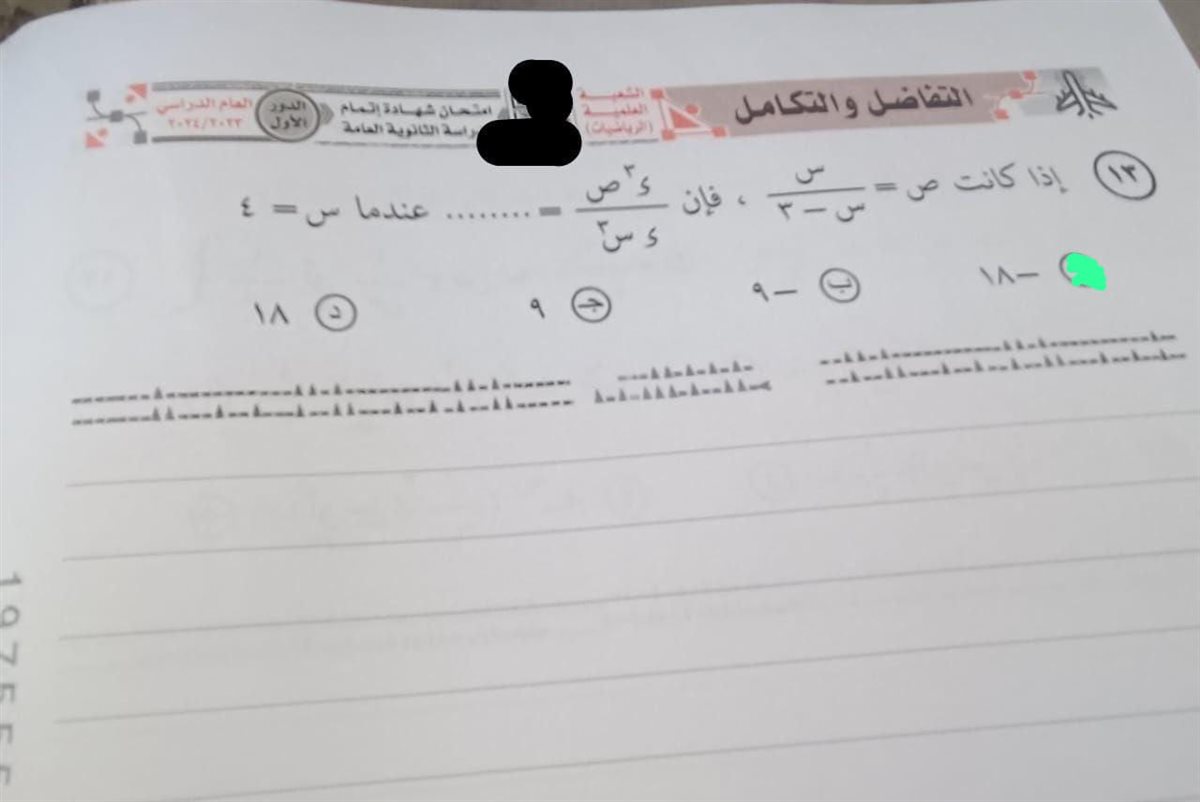 التفاضل والتكامل
الشعبة
العلمية
(الرياضيات)
امتحان شهادة إتمام
الثانوية العامة
الدور
الأول
العام الدراسي
٢٠٢٤/٢٠٢٣
١٣ إذا كانت ص = س / (س − ٣) ، فإن ء٣ص / ء س٣ = ........ عندما س = ٤
−١٨
ب −٩
جـ ٩
د ١٨
197555